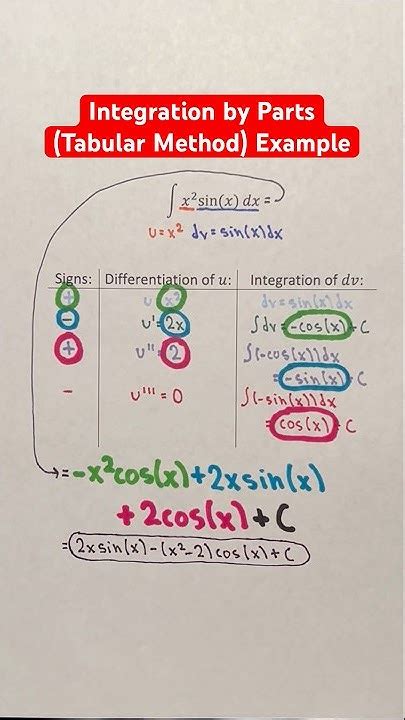 Integration by Parts
(Tabular Method) Example
∫ x² sin(x) dx =
u = x² dv = sin(x)dx
Signs: Differentiation of u: Integration of dv:
+ u x² dv = sin(x)dx
- u' = 2x ∫dv = -cos(x) + C
+ u'' = 2 ∫(-cos(x))dx
= -sin(x) + C
- u''' = 0 ∫(-sin(x))dx
= cos(x) + C
= -x²cos(x) + 2xsin(x)
+ 2cos(x) + C
= 2xsin(x) - (x²-2)cos(x) + C